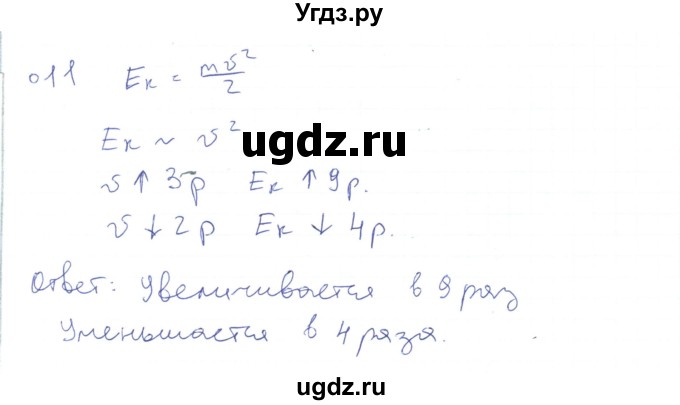 Угдз.ру
011 Eк = mv²/2
Eк ~ v²
ugdz.ru
v ↑ 3р Eк ↑ 9р.
v ↓ 2р Eк ↓ 4р.
Ответ: Увеличивается в 9 раз
Уменьшается в 4 раза.
ugdz.ru